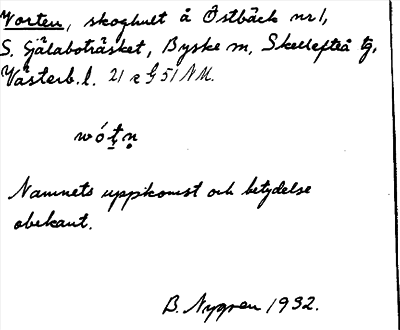 Vorten, skoghult å Östbäck nr 1,
S. Gälaboträsket, Byske sn, Skellefteå tg,
Västerb. l. 21 e G 51 NM.
wótṇ
Namnets uppkomst och betydelse
obekant.
B. Nygren 1932.